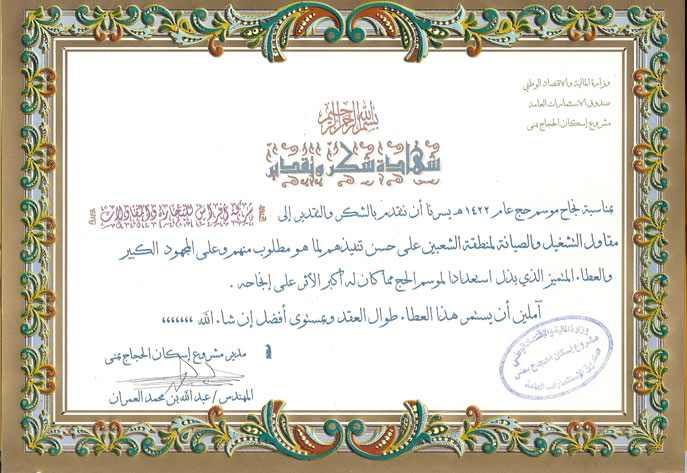 وزارة المالية والاقتصاد الوطني
صندوق الاستثمارات العامة
مشروع إسكان الحجاج بمنى
بسم الله الرحمن الرحيم
شهادة شكر وتقدير
بمناسبة نجاح موسم حج عام ١٤٢٢ هـ يسرنا أن نتقدم بالشكر والتقدير إلى شركة أفراس للتجارة والمقاولات
مقاول التشغيل والصيانة لمنطقة الشعبين على حسن تنفيذهم لما هو مطلوب منهم وعلى المجهود الكبير
والعطاء المتميز الذي بذل استعدادا لموسم الحج مما كان له أكبر الأثر على إنجاحه .
آملين أن يستمر هذا العطاء طوال العقد وبمستوى أفضل إن شاء الله ،،،،،،،
مدير مشروع إسكان الحجاج بمنى
المهندس / عبد الله بن محمد العمران
وزارة المالية والاقتصاد الوطني
مشروع إسكان الحجاج بمنى
صندوق الاستثمارات العامة